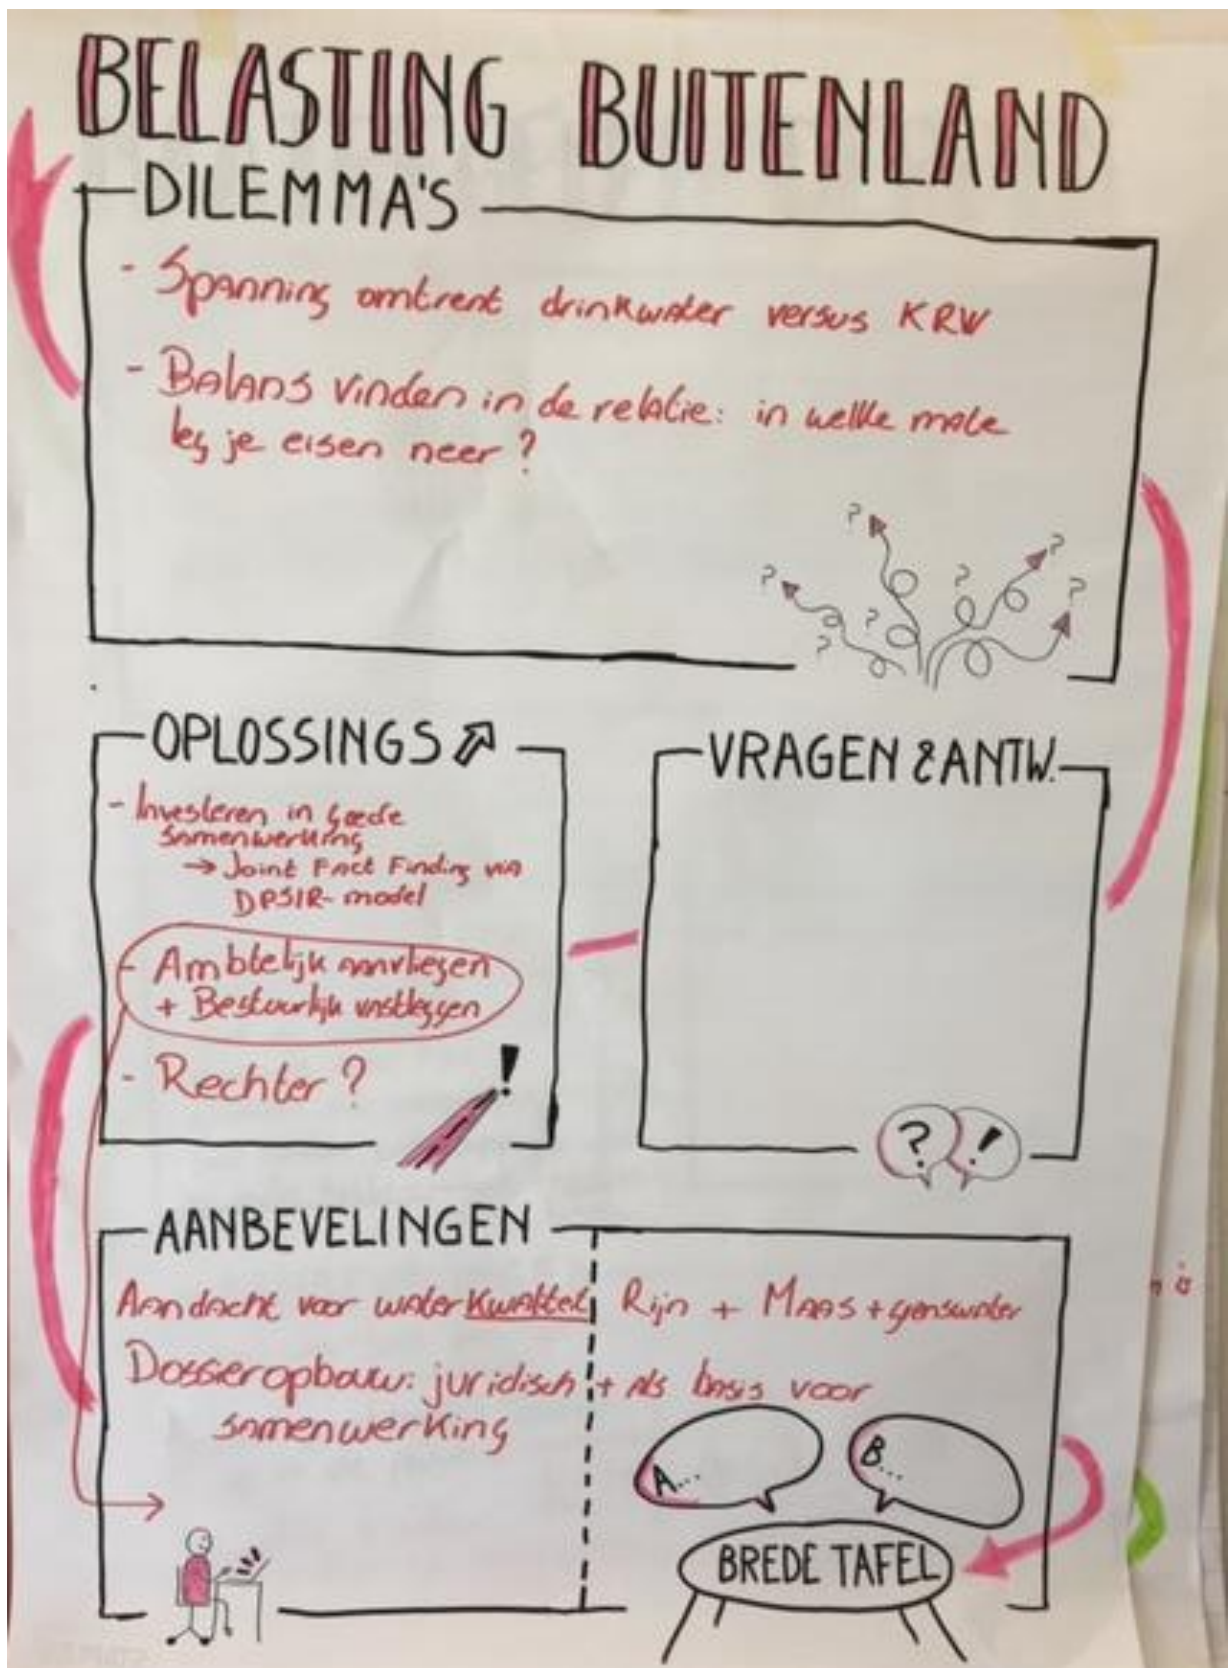 BELASTING BUITENLAND
DILEMMA'S
- Spanning omtrent drinkwater versus KRW
- Balans vinden in de relatie: in welke mate
leg je eisen neer?
? ? ? ? ? ? ?
OPLOSSINGS
- Investeren in goede
samenwerking
→ Joint Fact Finding via
DPSIR-model
- Ambtelijk aanvliegen
+ Bestuurlijk vastleggen
- Rechter?
!
VRAGEN & ANTW.
? !
AANBEVELINGEN
Aandacht voor waterkwaliteit Rijn + Maas + grenswater
Dossieropbouw: juridisch + als basis voor
samenwerking
A...
B...
BREDE TAFEL